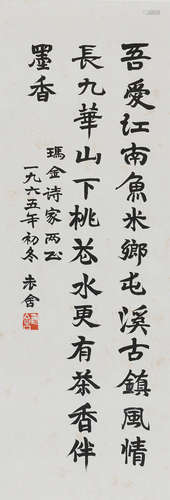 吾爱江南魚米鄉屯溪古鎮風情
長九華山下桃花水更有茶香伴
墨香
瑪金诗家两正
一九六五年初冬 老舍